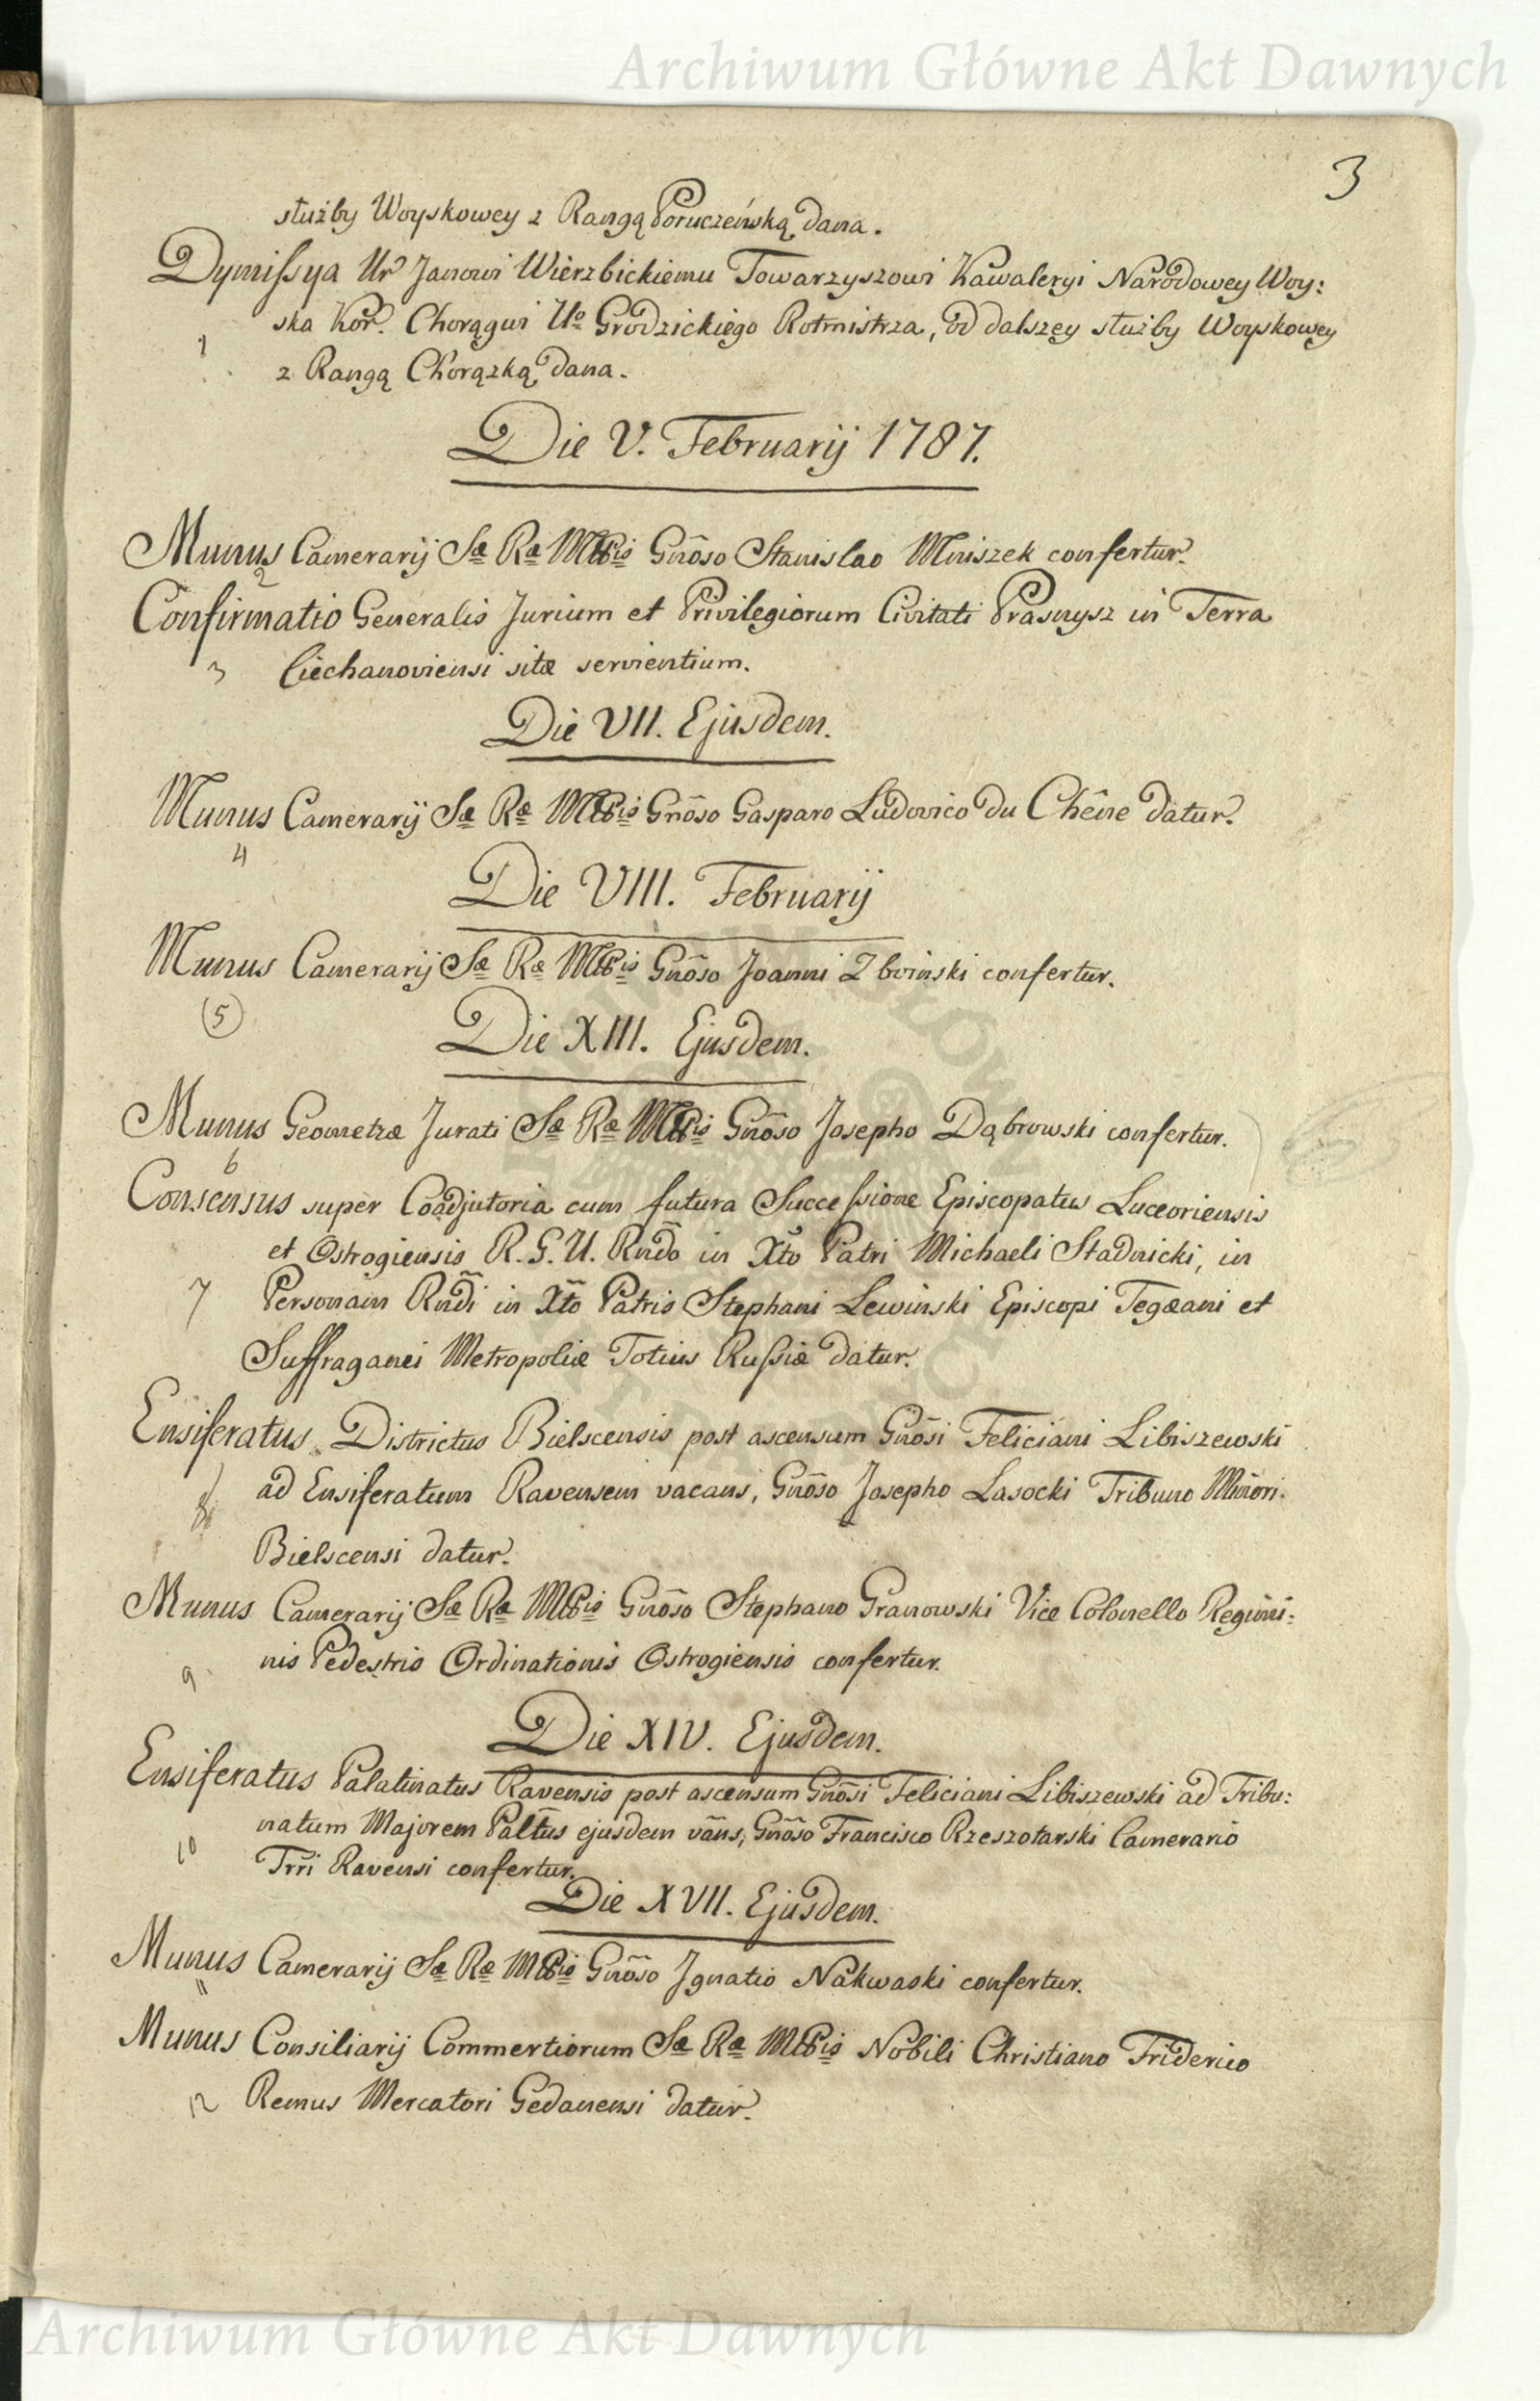 Archiwum Główne Akt Dawnych
3
służby Woyskowey z Rangą Poruczeńską dana.
Dymissya Ur Janowi Wierzbickiemu Towarzyszowi Kawaleryi Narodowey Woy:
ska Kor. Chorągwi Uo Grodzickiego Rotmistrza, od dalszey służby Woyskowey
1
z Rangą Chorązką dana.
Die V. Februarij 1787.
Munus Camerarij Sæ Ræ Mttis Gnõso Stanislao Mniszek confertur.
2
Confirmatio Generalis Jurium et Privilegiorum Civitati Prasnysz in Terra
3 Ciechanoviensi sitæ servientium.
Die VII. Ejusdem.
Munus Camerarij Sæ Ræ Mttis Gnõso Gasparo Ludovico du Chêne datur.
4
Die VIII. Februarij
Munus Camerarij Sæ Ræ Mttis Gnõso Joanni Zboinski confertur.
5
Die XIII. Ejusdem.
Munus Geometræ Jurati Sæ Ræ Mttis Gnõso Josepho Dąbrowski confertur.
6
Consensus super Coadjutoria cum futura Successione Episcopatus Luceoriensis
et Ostrogiensis R. G. U. Rndo in Xto Patri Michaeli Stadnicki, in
7 Personam Rndi in Xto Patris Stephani Lewinski Episcopi Tegæani et
Suffraganei Metropoliæ Totius Russiæ datur.
Ensiferatus Districtus Bielscensis post ascensum Gnõsi Feliciani Libiszewski
8 ad Ensiferatum Ravensem vacans, Gnõso Josepho Lasocki Tribuno Minori
Bielscensi datur.
Munus Camerarij Sæ Ræ Mttis Gnõso Stephano Granowski Vice Colonello Regimi:
9 nis Pedestris Ordinationis Ostrogiensis confertur.
Die XIV. Ejusdem.
Ensiferatus Palatinatus Ravensis post ascensum Gnõsi Feliciani Libiszewski ad Tribu:
10 natum Majorem Paltus ejusdem vãns, Gnõso Francisco Rzeszotarski Camerario
Trri Ravensi confertur.
Die XVII. Ejusdem.
Munus Camerarij Sæ Ræ Mttis Gnõso Ignatio Nakwaski confertur.
11
Munus Consiliarij Commertiorum Sæ Ræ Mttis Nobili Christiano Friderico
12 Remus Mercatori Gedanensi datur.
Archiwum Główne Akt Dawnych